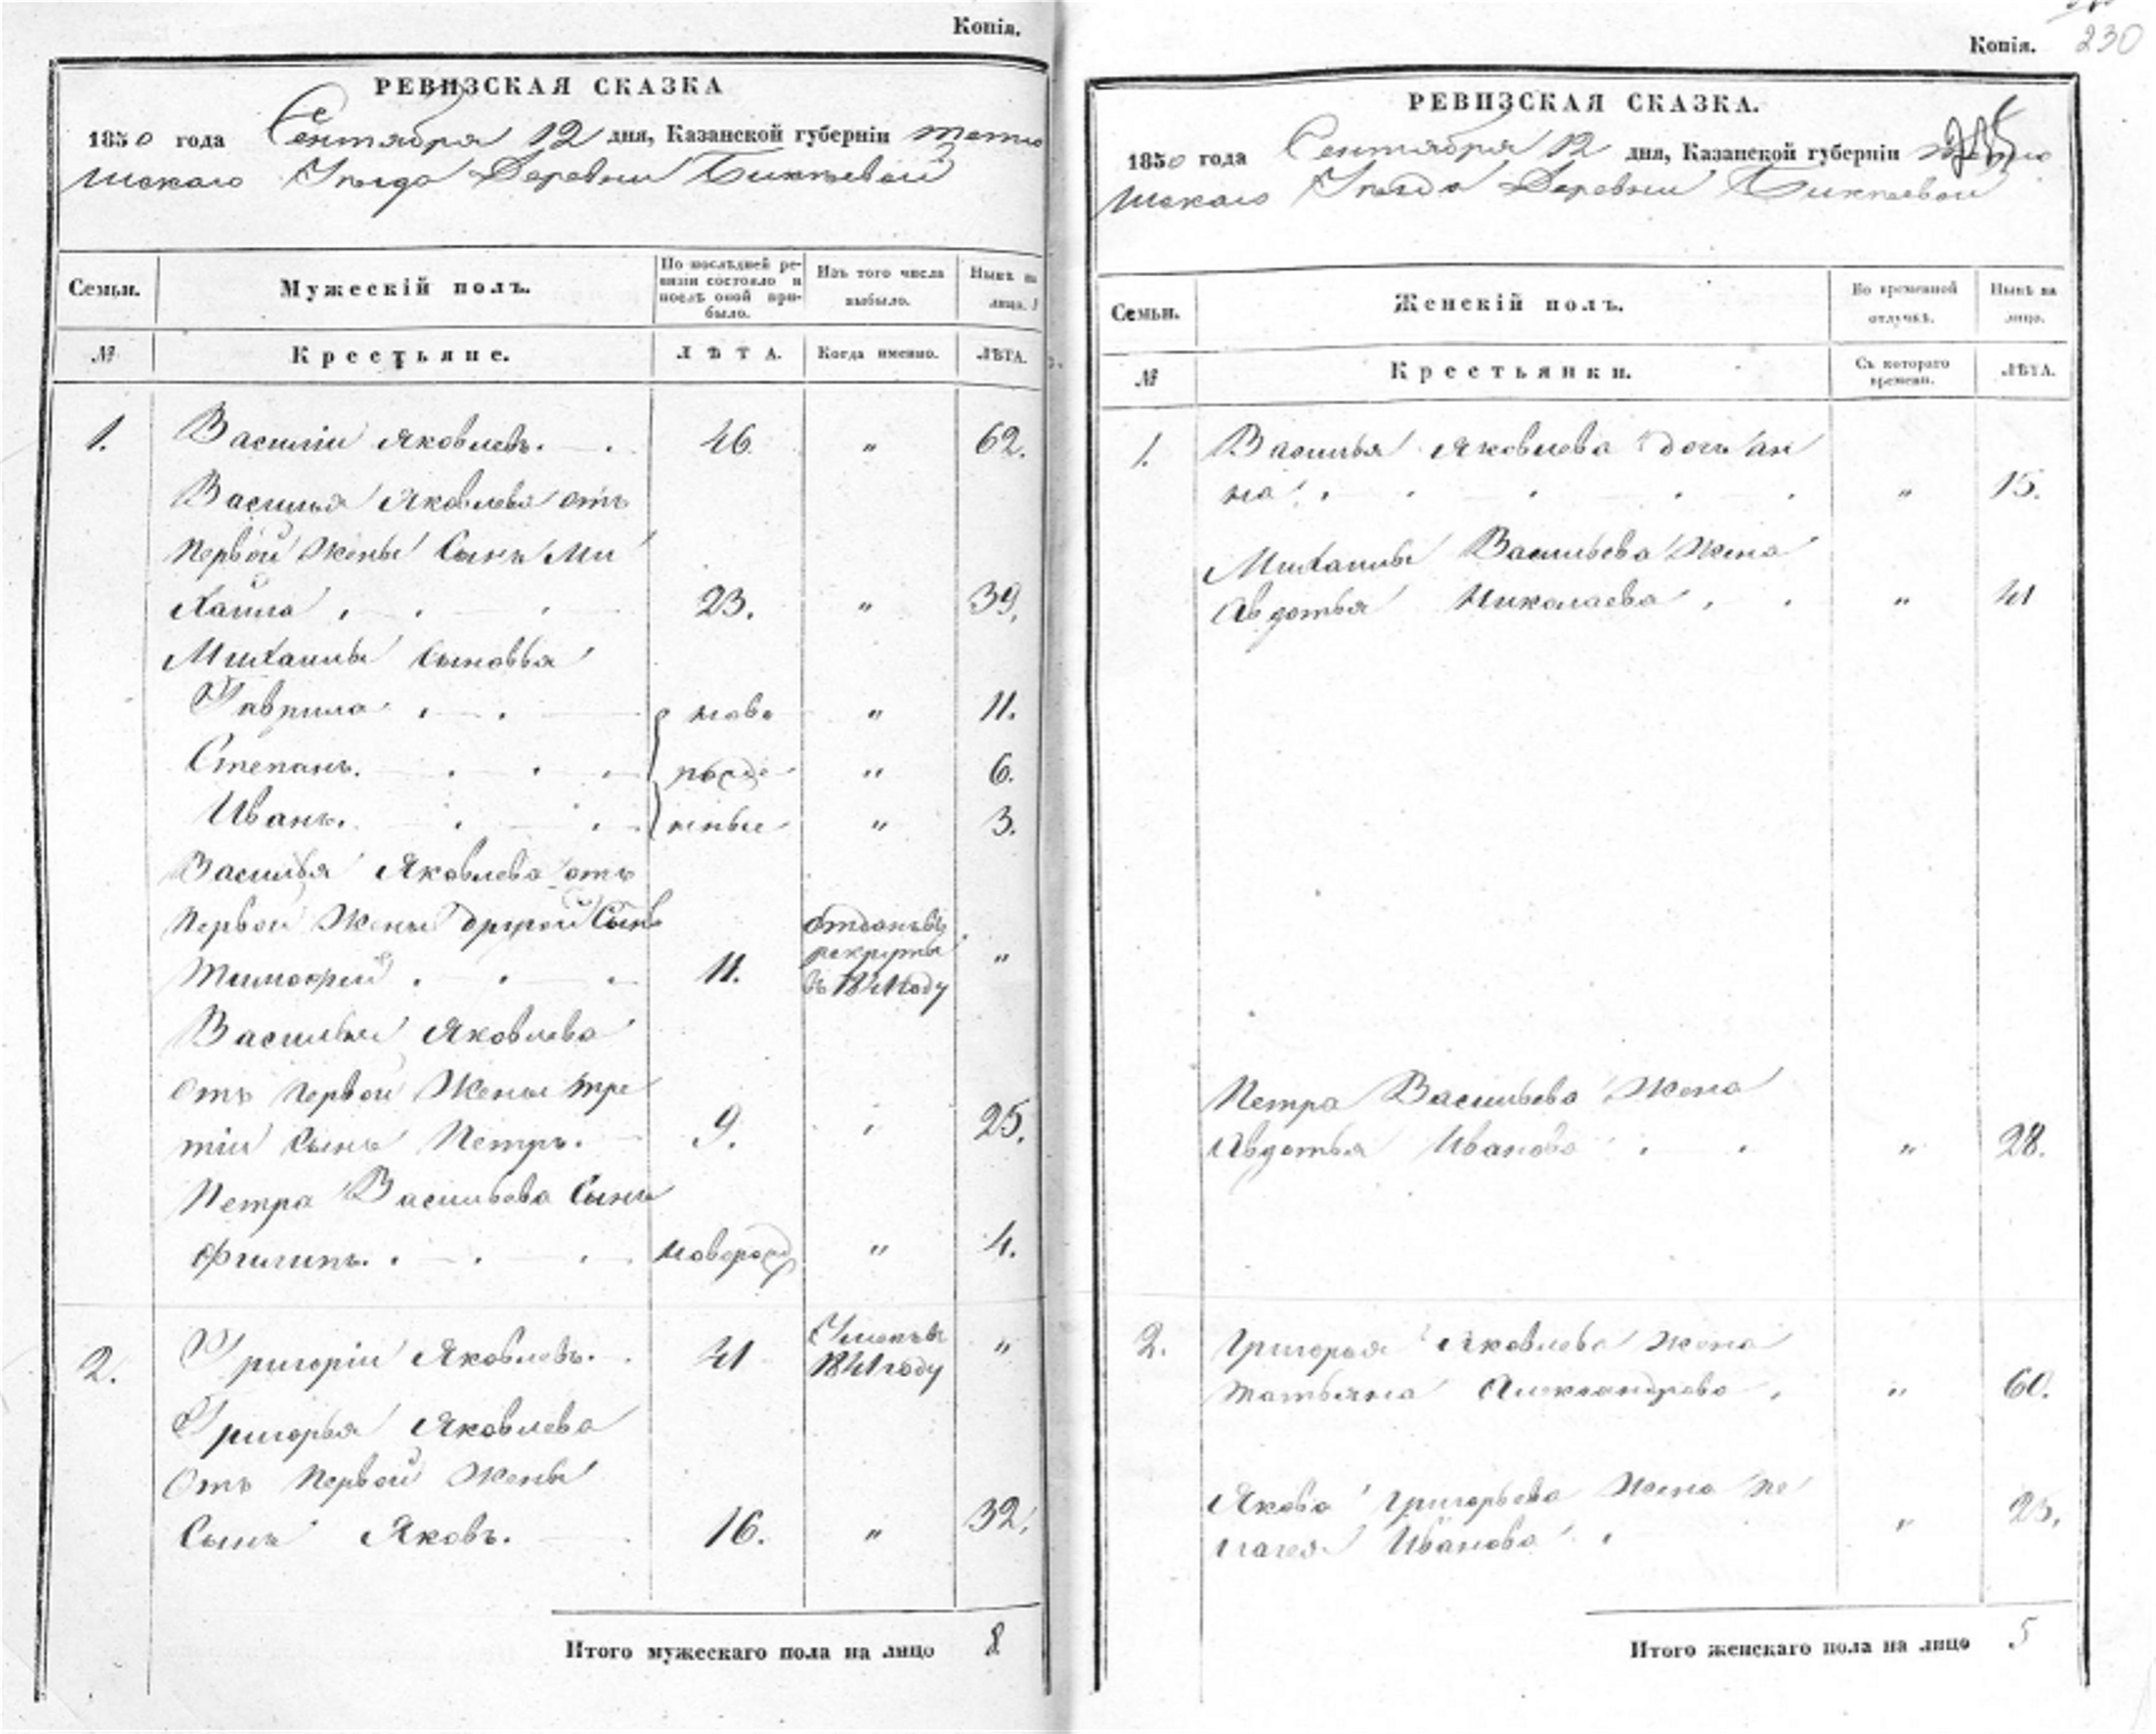 Копія.
РЕВИЗСКАЯ СКАЗКА
1850 года Сентября 12 дня, Казанской губерніи Тетю
шскаго Уѣзда Деревни Бикѣевой
Семьи.
Мужескій полъ.
По послѣдней ре-
визіи состояло и
послѣ оной при-
было.
Изъ того числа
выбыло.
Нынѣ на
лицо.
№
Крестьяне.
ЛѢТА.
Когда именно.
ЛѢТА.
1. Василій Яковлевъ. 46 " 62.
Василья Яковлева отъ
первой жены сынъ Ми
хаила 23. " 39.
Михаилы сыновья
Гаврила ново " 11.
Степанъ. рожде " 6.
Иванъ. нные " 3.
Василья Яковлева отъ
первой жены другой сынъ
Тимофей 11. отданъ въ рекруты въ 1841 году "
Василья Яковлева
отъ первой жены тре
тій сынъ Петръ. 9. " 25.
Петра Васильева сынъ
Филипъ. новорожд " 4.
2. Григорій Яковлевъ. 41 Умеръ въ 1841 году "
Григорья Яковлева
отъ первой жены
сынъ Яковъ. 16. " 32.
Итого мужескаго пола на лицо 8
Копія. 230
РЕВИЗСКАЯ СКАЗКА.
1850 года Сентября 12 дня, Казанской губерніи Тетю
шскаго Уѣзда Деревни Бикѣевой
Семьи.
Женскій полъ.
Во временной
отлучкѣ.
Нынѣ на
лицо.
№
Крестьянки.
Съ котораго
времени.
ЛѢТА.
1. Василья Яковлева дочь Ан
на " 15.
Михаилы Васильева жена
Авдотья Николаева " 41
Петра Васильева жена
Авдотья Иванова " 28.
2. Григорья Яковлева жена
Татьяна Александрова " 60.
Якова Григорьева жена Пе
лагея Иванова " 25.
Итого женскаго пола на лицо 5